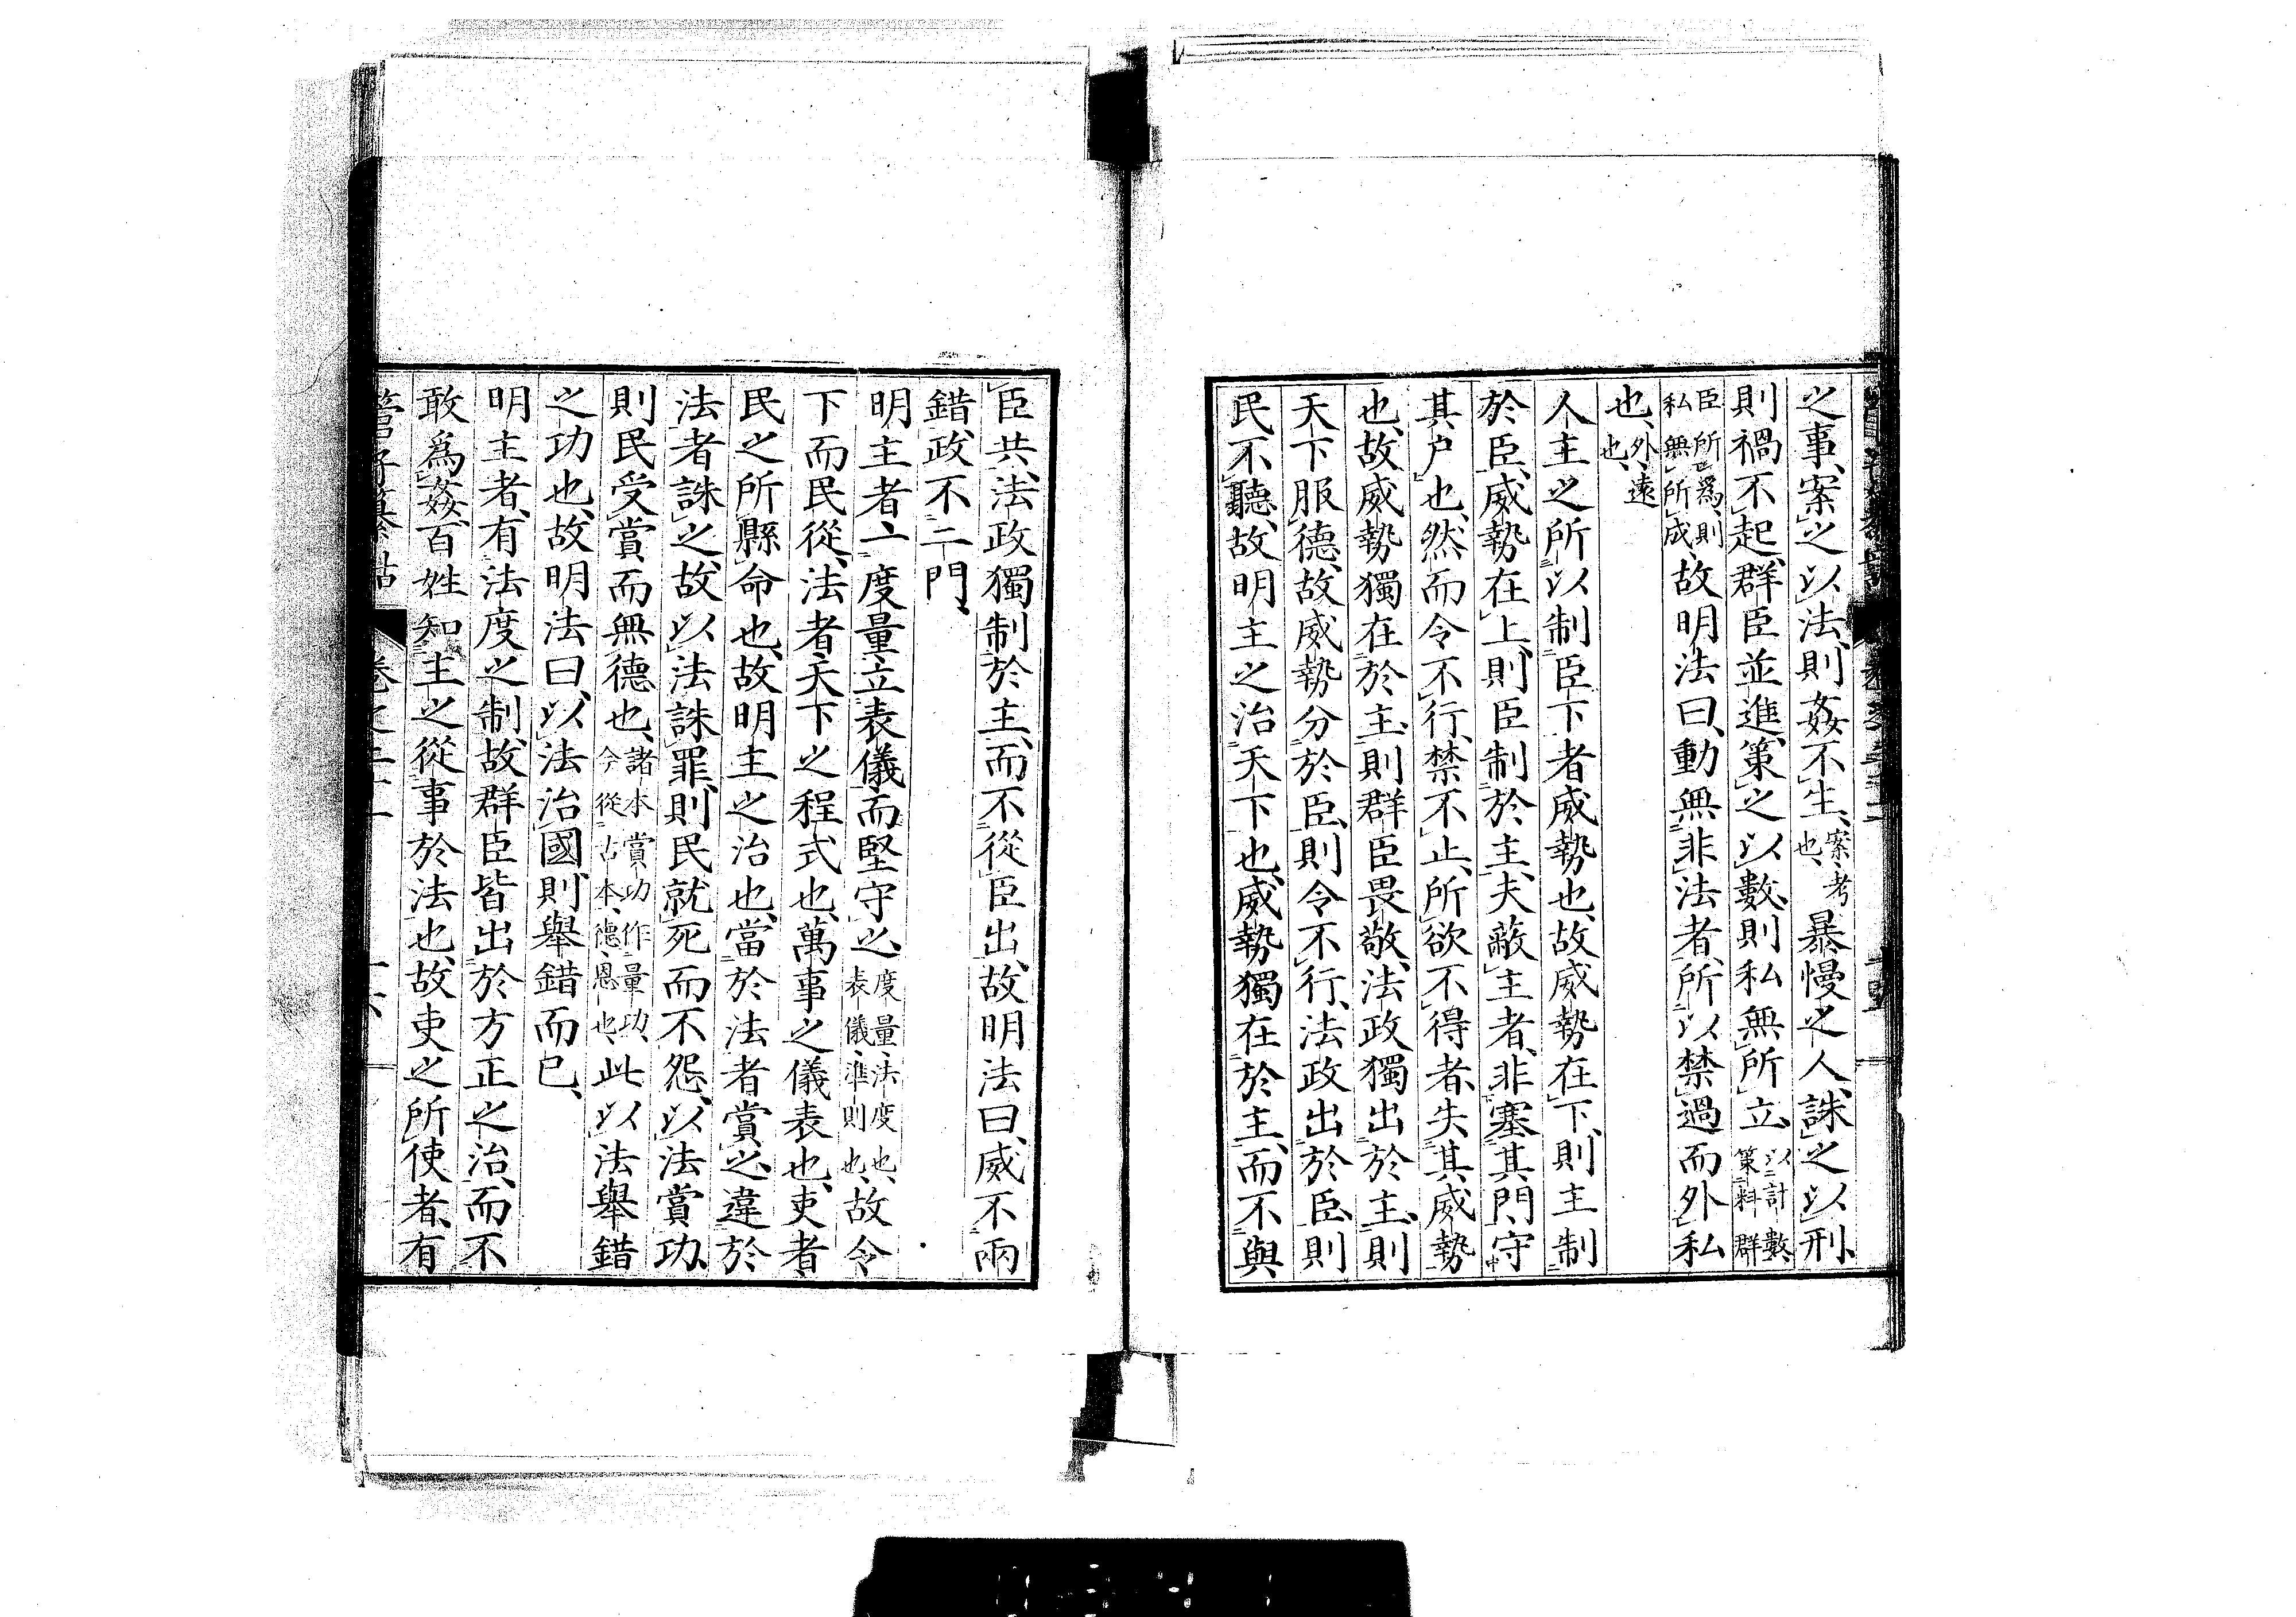 之事、案之以法、則姦不生、案、考也、暴慢之人、誅之以刑、
則禍不起、群臣並進、策之以數、則私無所立、以計數、策料群
臣所爲、則私無所成、故明法曰、動無非法者、所以禁過而外私
也、外、遠也、
人主之所以制臣下者、威勢也、故威勢在下、則主制
於臣、威勢在上、則臣制於主、夫蔽主者、非塞其門、守
其户也、然而令不行、禁不止、所欲不得者、失其威勢
也、故威勢獨在於主、則群臣畏敬、法政獨出於主、則
天下服德、故威勢分於臣、則令不行、法政出於臣、則
民不聽、故明主之治天下也、威勢獨在於主、而不與
臣共、法政獨制於主、而不從臣出、故明法曰、威不兩
錯、政不二門、
明主者、一度量、立表儀、而堅守之、度量、法度也、表儀、準則也、故令
下而民從、法者、天下之程式也、萬事之儀表也、吏者、
民之所縣命也、故明主之治也、當於法者賞之、違於
法者誅之、故以法誅罪、則民就死而不怨、以法賞功、
則民受賞而無德也、諸本賞功作量功、今從古本、德、恩也、此以法舉錯
之功也、故明法曰、以法治國、則舉錯而已、
明主者、有法度之制、故群臣皆出於方正之治、而不
敢爲姦、百姓知主之從事於法也、故吏之所使者、有
管子纂詁 卷之二十一